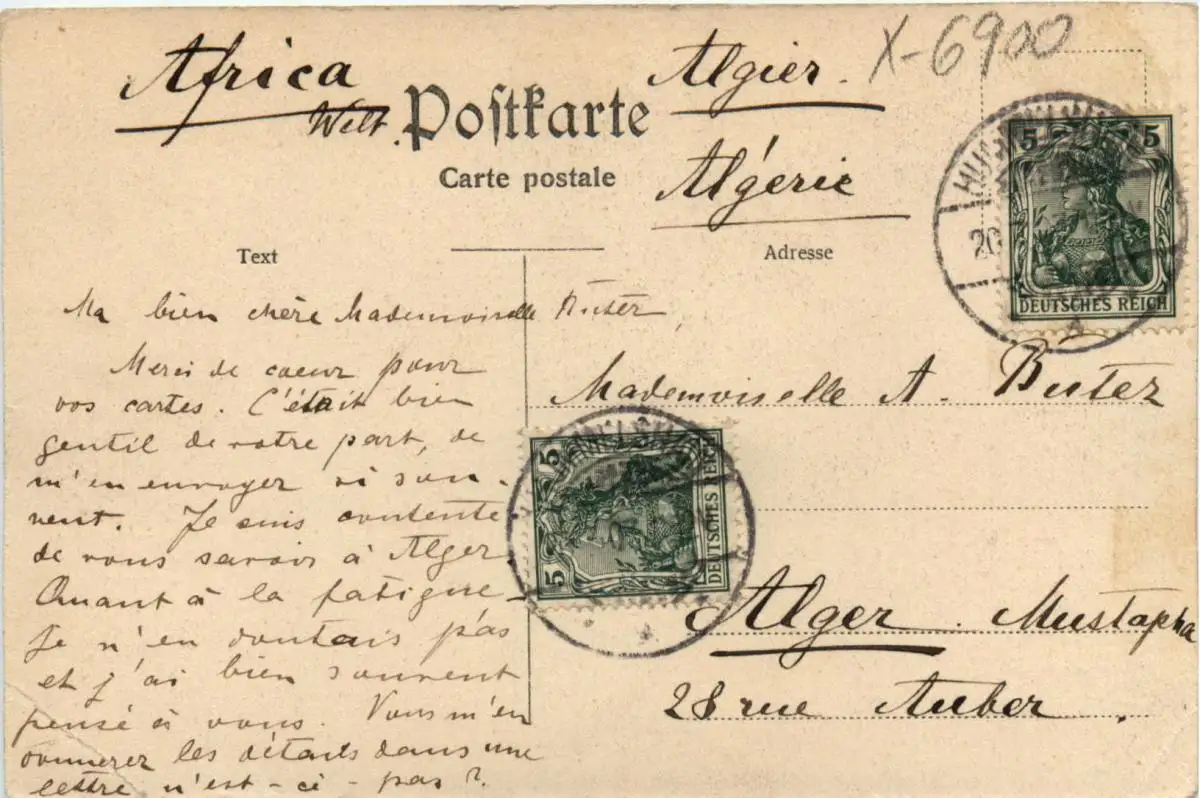 Africa
Welt.
Postkarte
Carte postale
Algier.
X-6900
Algérie
Text
Adresse
5 5
DEUTSCHES REICH
20
Ma bien chère Mademoiselle Buter,
Merci de coeur pour
vos cartes. C'était bien
gentil de votre part, de
m'en envoyer si sou-
vent. Je suis contente
de vous savoir à Alger
Quant à la fatigue
Je n'en doutais pas
et j'ai bien souvent
pensé à vous. Vous m'en
donnerez les détails dans une
lettre n'est-ci-pas?
Mademoiselle A. Buter
5 5
DEUTSCHES REICH
Alger. Mustapha
28 rue Auber.